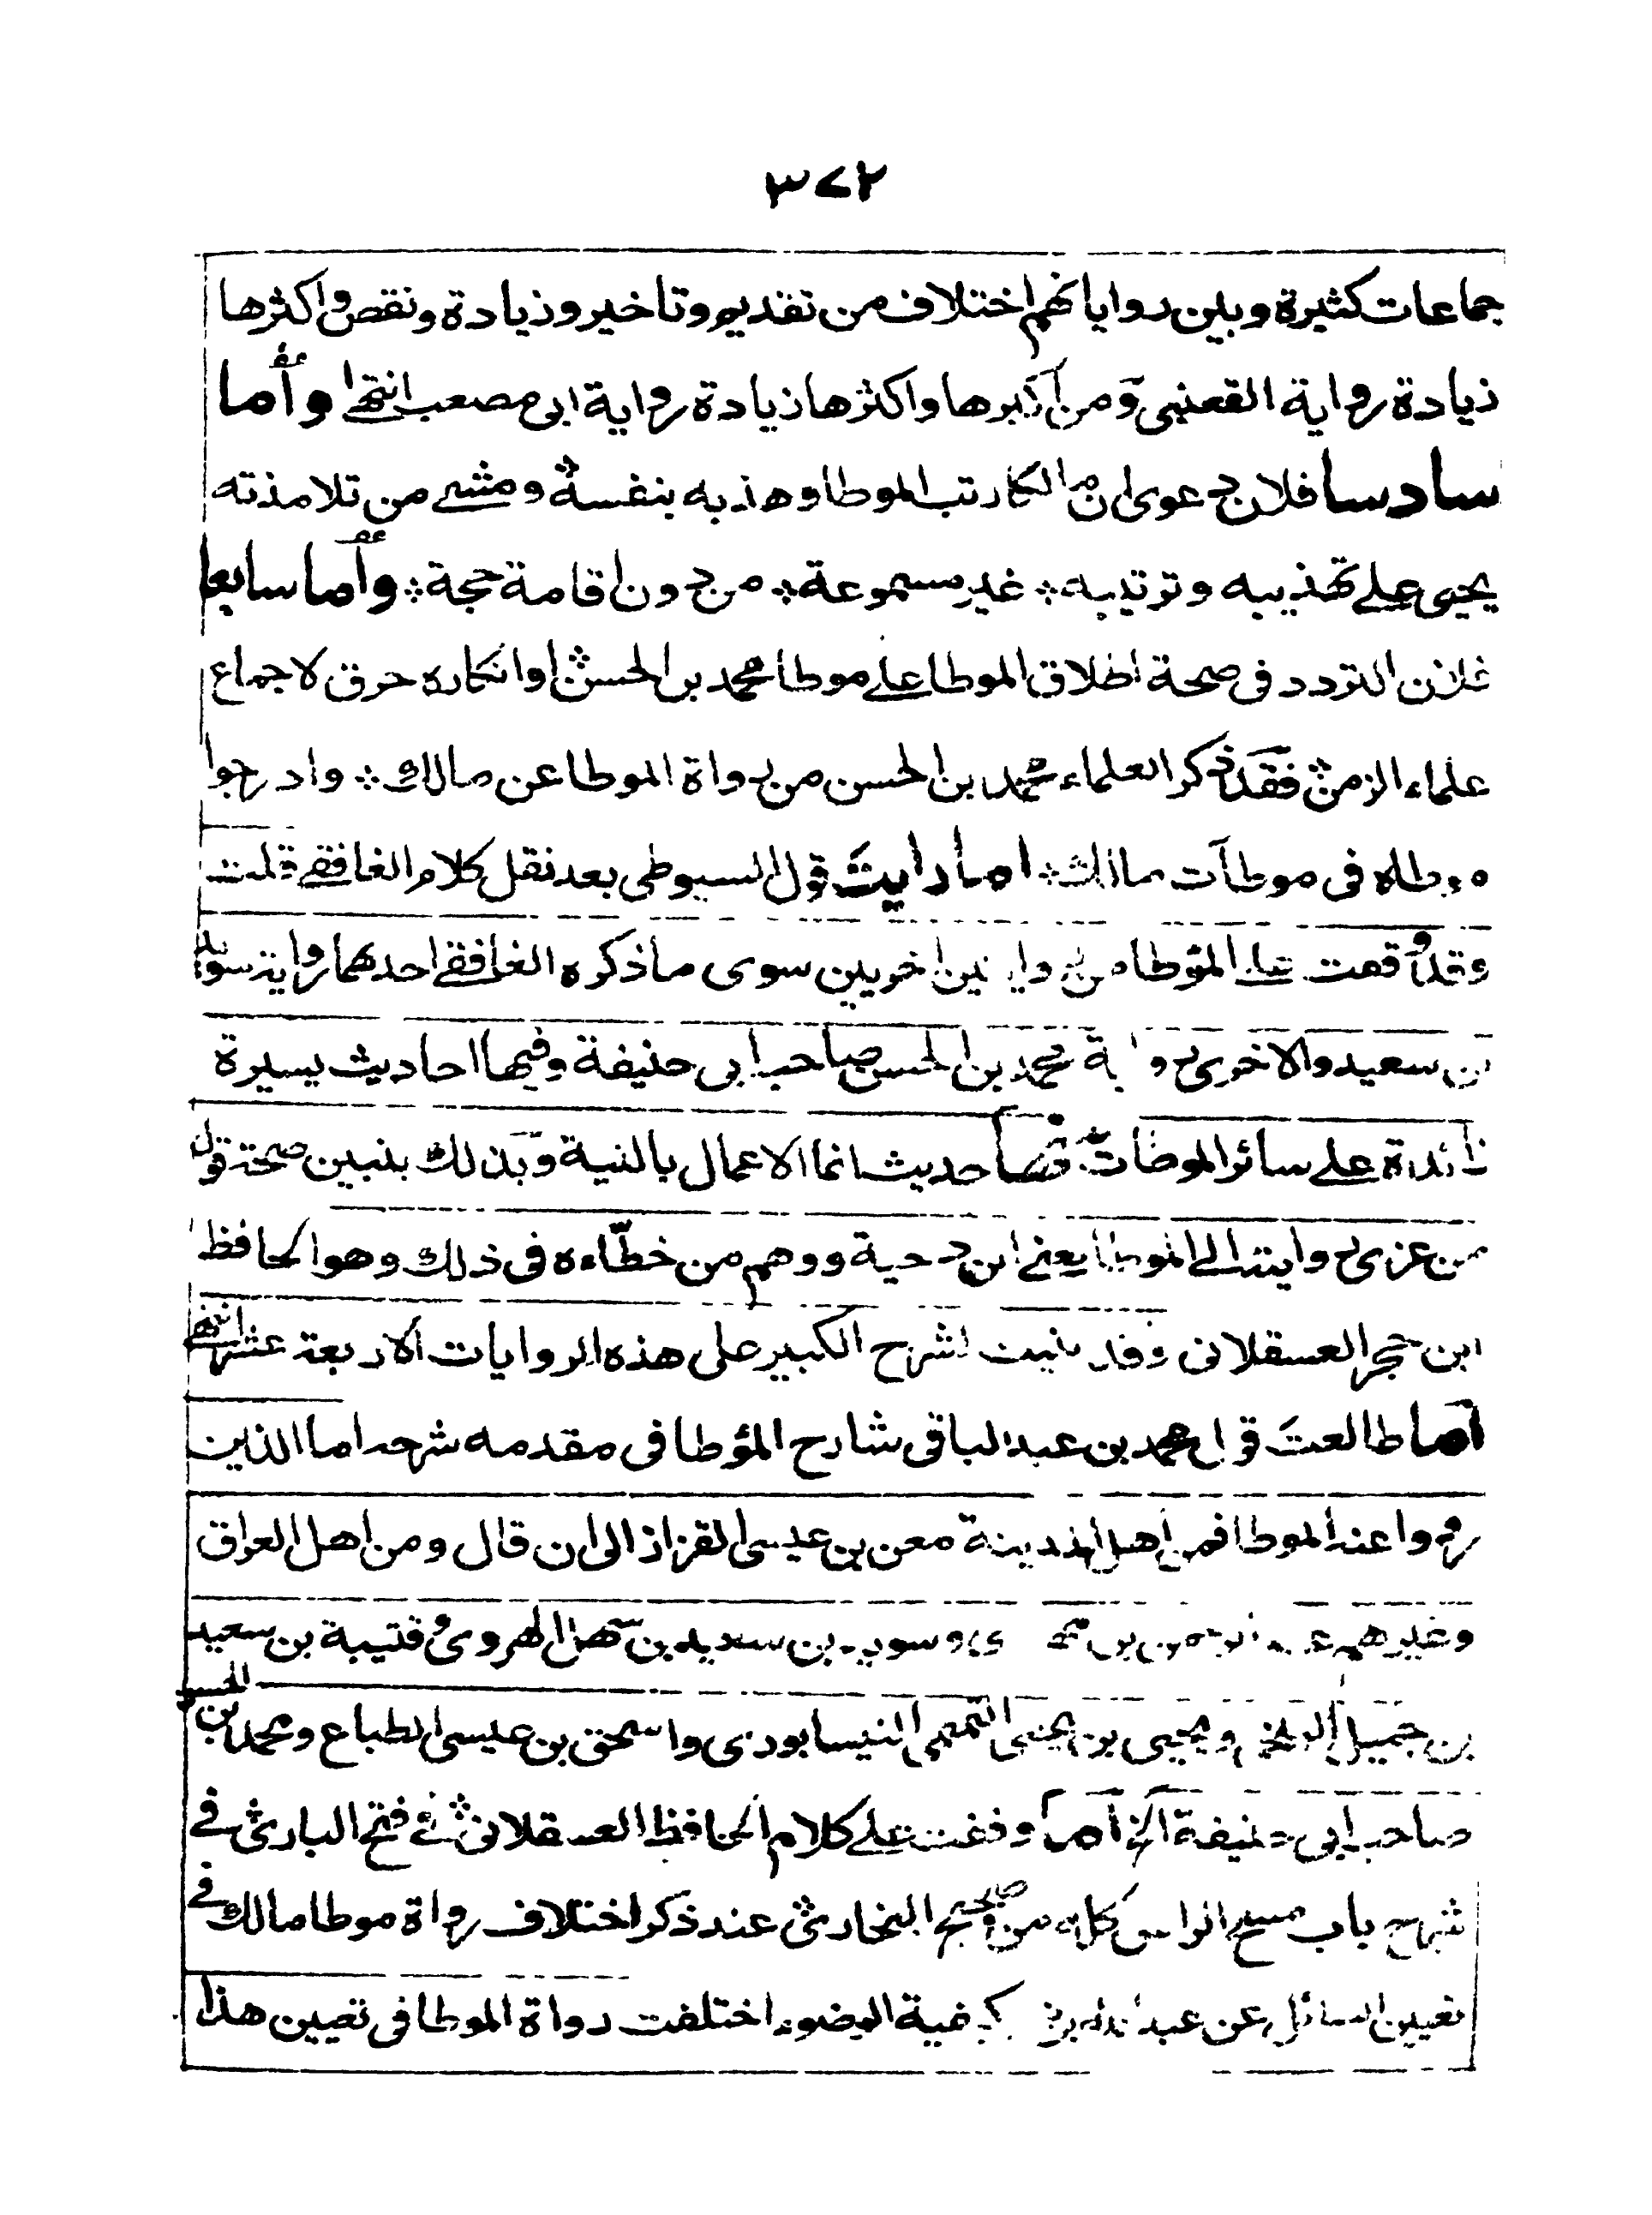 ٣٧٢
جماعات كثيرة وبين رواياتهم اختلاف من تقديم وتاخير وزيادة ونقص واكثرها
زيادة رواية القعنبي ومن اكبرها واكثرها زيادة رواية ابى مصعب انتهى واما
سادسا فلان دعوى ان مالكا رتب الموطا وهذبه بنفسه ومشى من تلامذته
يحيى على تهذيبه وترتيبه غير مسموعة من دون اقامة حجة واما سابعا
فلان التردد فى صحة اطلاق الموطا على موطا محمد بن الحسن او انكاره خرق لاجماع
علماء الزمن فقد ذكر العلماء محمد بن الحسن من رواة الموطا عن مالك وادرجوا
موطاه فى موطآت مالك اما رايت قول السيوطى بعد نقل كلام الغافقى قلت
وقد وقفت على المؤطا من روايتين اخريين سوى ما ذكره الغافقى احدهما رواية سويد
بن سعيد والاخرى رواية محمد بن الحسن صاحب ابى حنيفة وفيها احاديث يسيرة
زائدة على سائر الموطات منها حديث انما الاعمال بالنية وبذلك يتبين صحة قول
من عزى روايته الى الموطا يعنى ابن دحية ووهم من خطّاءه فى ذلك وهو الحافظ
ابن حجر العسقلانى وقد بنيت الشرح الكبير على هذه الروايات الاربعة عشر انتهى
اما طالعت قول محمد بن عبد الباقى شارح المؤطا فى مقدمه شرحه اما الذين
رووا عنه الموطا فمن اهل المدينة معن بن عيسى القزاز الى ان قال ومن اهل العراق
وغيرهم عبد الرحمن بن مهدى وسويد بن سعيد بن سهل الهروى وقتيبة بن سعيد
بن جميل البلخى ويحيى بن يحيى التميمى النيسابورى واسحق بن عيسى الطباع ومحمد بن الحسن
صاحب ابى حنيفة الخ اما وقفت على كلام الحافظ العسقلانى فى فتح البارى فى
شرح باب مسح الراس كله من صحيح البخارى عند ذكر اختلاف رواة موطا مالك فى
تعيين السائل عن عبد الله بن كيفية الوضوء اختلفت رواة الموطا فى تعيين هذا